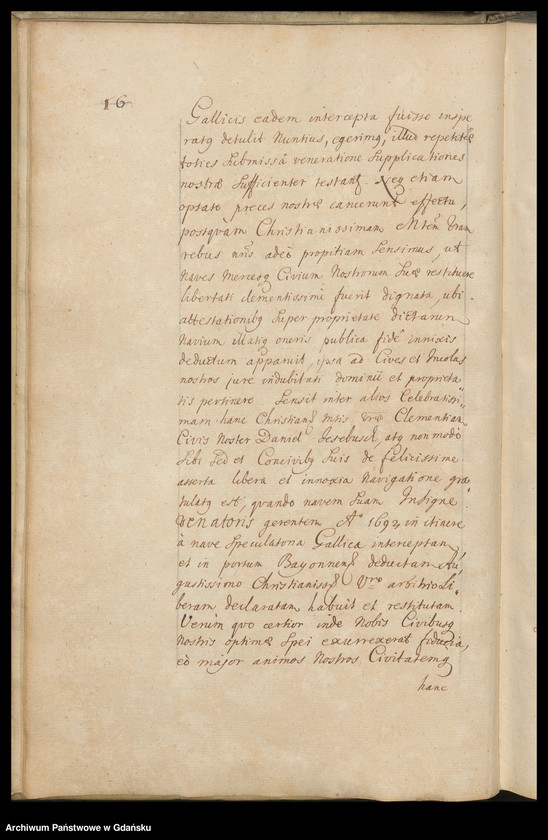 16
Gallicis eadem intercepta fuisse inspe
ratq detulit Nuntius, egerimq, illud repetitæ
toties submissâ veneratione Supplicationes
nostræ sufficienter testantr. Neq etiam
optato preces nostræ caruerunt effectu,
postquam Christianissimam Mtem Vram
rebus nris adeò propitiam sensimus, ut
naves mercesq Civium Nostrorum suæ restituere
libertati clementissimè fuerit dignata, ubi
attestationibq super proprietate dictarum
Navium illatiq oneris publica fide innixis
deductum apparuit, ipsa ad Cives et Incolas
nostros jure indubitati dominii et proprieta„
tis pertinere. Sensit inter alios Celebratissi„
mam hanc Christianæ Mtis Vræ Clementiam
Civis Noster Daniel Jesebusch, atq non modò
sibi sed et Concivibq suis de felicissime
asserta libera et innoxia Navigatione gra„
tulatq est, quando navem suam Insigne
Venatoris gerentem Ao 1692 in itinere
à nave speculatoria Gallica interceptam
et in portum Bayonnens deductam Au„
gustissimo Christianissæ Vro arbitrio Li„
beram declaratam habuit et restitutam.
Verùm quo certior inde Nobis Civibusq
Nostris optimæ spei exurrexerat fiducia,
eò major animos Nostros Civitatemq
hanc
Archiwum Państwowe w Gdańsku